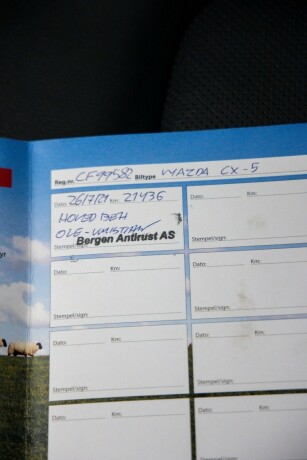 Reg.nr. CF99582 Biltype MAZDA CX-5
Dato: 26/7/21 Km: 21436
HOVEDBEH
OLE-
Bergen Antirust AS
Stempel/sign:
Stempel/sign:
Dato: Km:
Dato: Km:
Stempel/sign:
Stempel/sign:
Dato: Km:
Dato: Km:
Stempel/sign:
Stempel/sign:
Dato: Km:
Dato: Km: